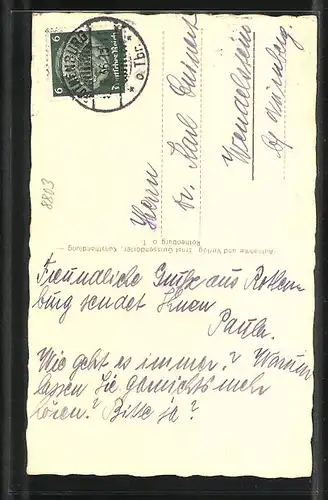 6 6
Deutsches Reich
o. Tbr.
8803
Herrn
Dr. Karl
Wendelstein
b/ Nürnberg
Aufnahme und Verlag Ernst Geissendörfer, Kunsthandlung –
Rothenburg o. T.
Freundliche Grüße aus Rothen-
burg sendet Ihnen
Paula.
Wie geht es immer? Warum
lassen Sie garnichts mehr
hören? Bitte ja?